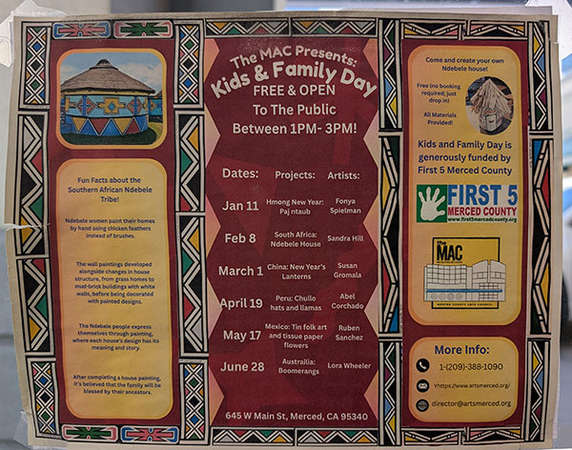 The MAC Presents:
Kids & Family Day
FREE & OPEN
To The Public
Between 1PM- 3PM!
Dates: Projects: Artists:
Jan 11 Hmong New Year: Paj ntaub Fonya Spielman
Feb 8 South Africa: Ndebele House Sandra Hill
March 1 China: New Year's Lanterns Susan Gromala
April 19 Peru: Chullo hats and llamas Abel Corchado
May 17 Mexico: Tin folk art and tissue paper flowers Ruben Sanchez
June 28 Australia: Boomerangs Lora Wheeler
645 W Main St, Merced, CA 95340
Fun Facts about the
Southern African Ndebele
Tribe!
Ndebele women paint their homes
by hand using chicken feathers
instead of brushes.
The wall paintings developed
alongside changes in house
structure, from grass homes to
mud-brick buildings with white
walls, before being decorated
with painted designs.
The Ndebele people express
themselves through painting,
where each house's design has its
meaning and story.
After completing a house painting,
it's believed that the family will be
blessed by their ancestors.
Come and create your own
Ndebele house!
Free (no booking
required; just
drop in)
All Materials
Provided!
Kids and Family Day is
generously funded by
First 5 Merced County
FIRST 5
MERCED COUNTY
www.first5mercedcounty.org
The
MAC
MERCED COUNTY ARTS COUNCIL
More Info:
1-(209)-388-1090
Yhttps://www.artsmerced.org/
director@artsmerced.org